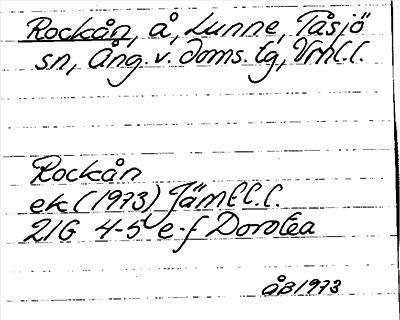 Rockån, å, Lunne, Tåsjö
sn, Ång. v. doms. tg, Vrnl.l.
Rockån
ek (1973) Jämtl.l.
21G 4-5 e-f Dorotea
ÅB1973